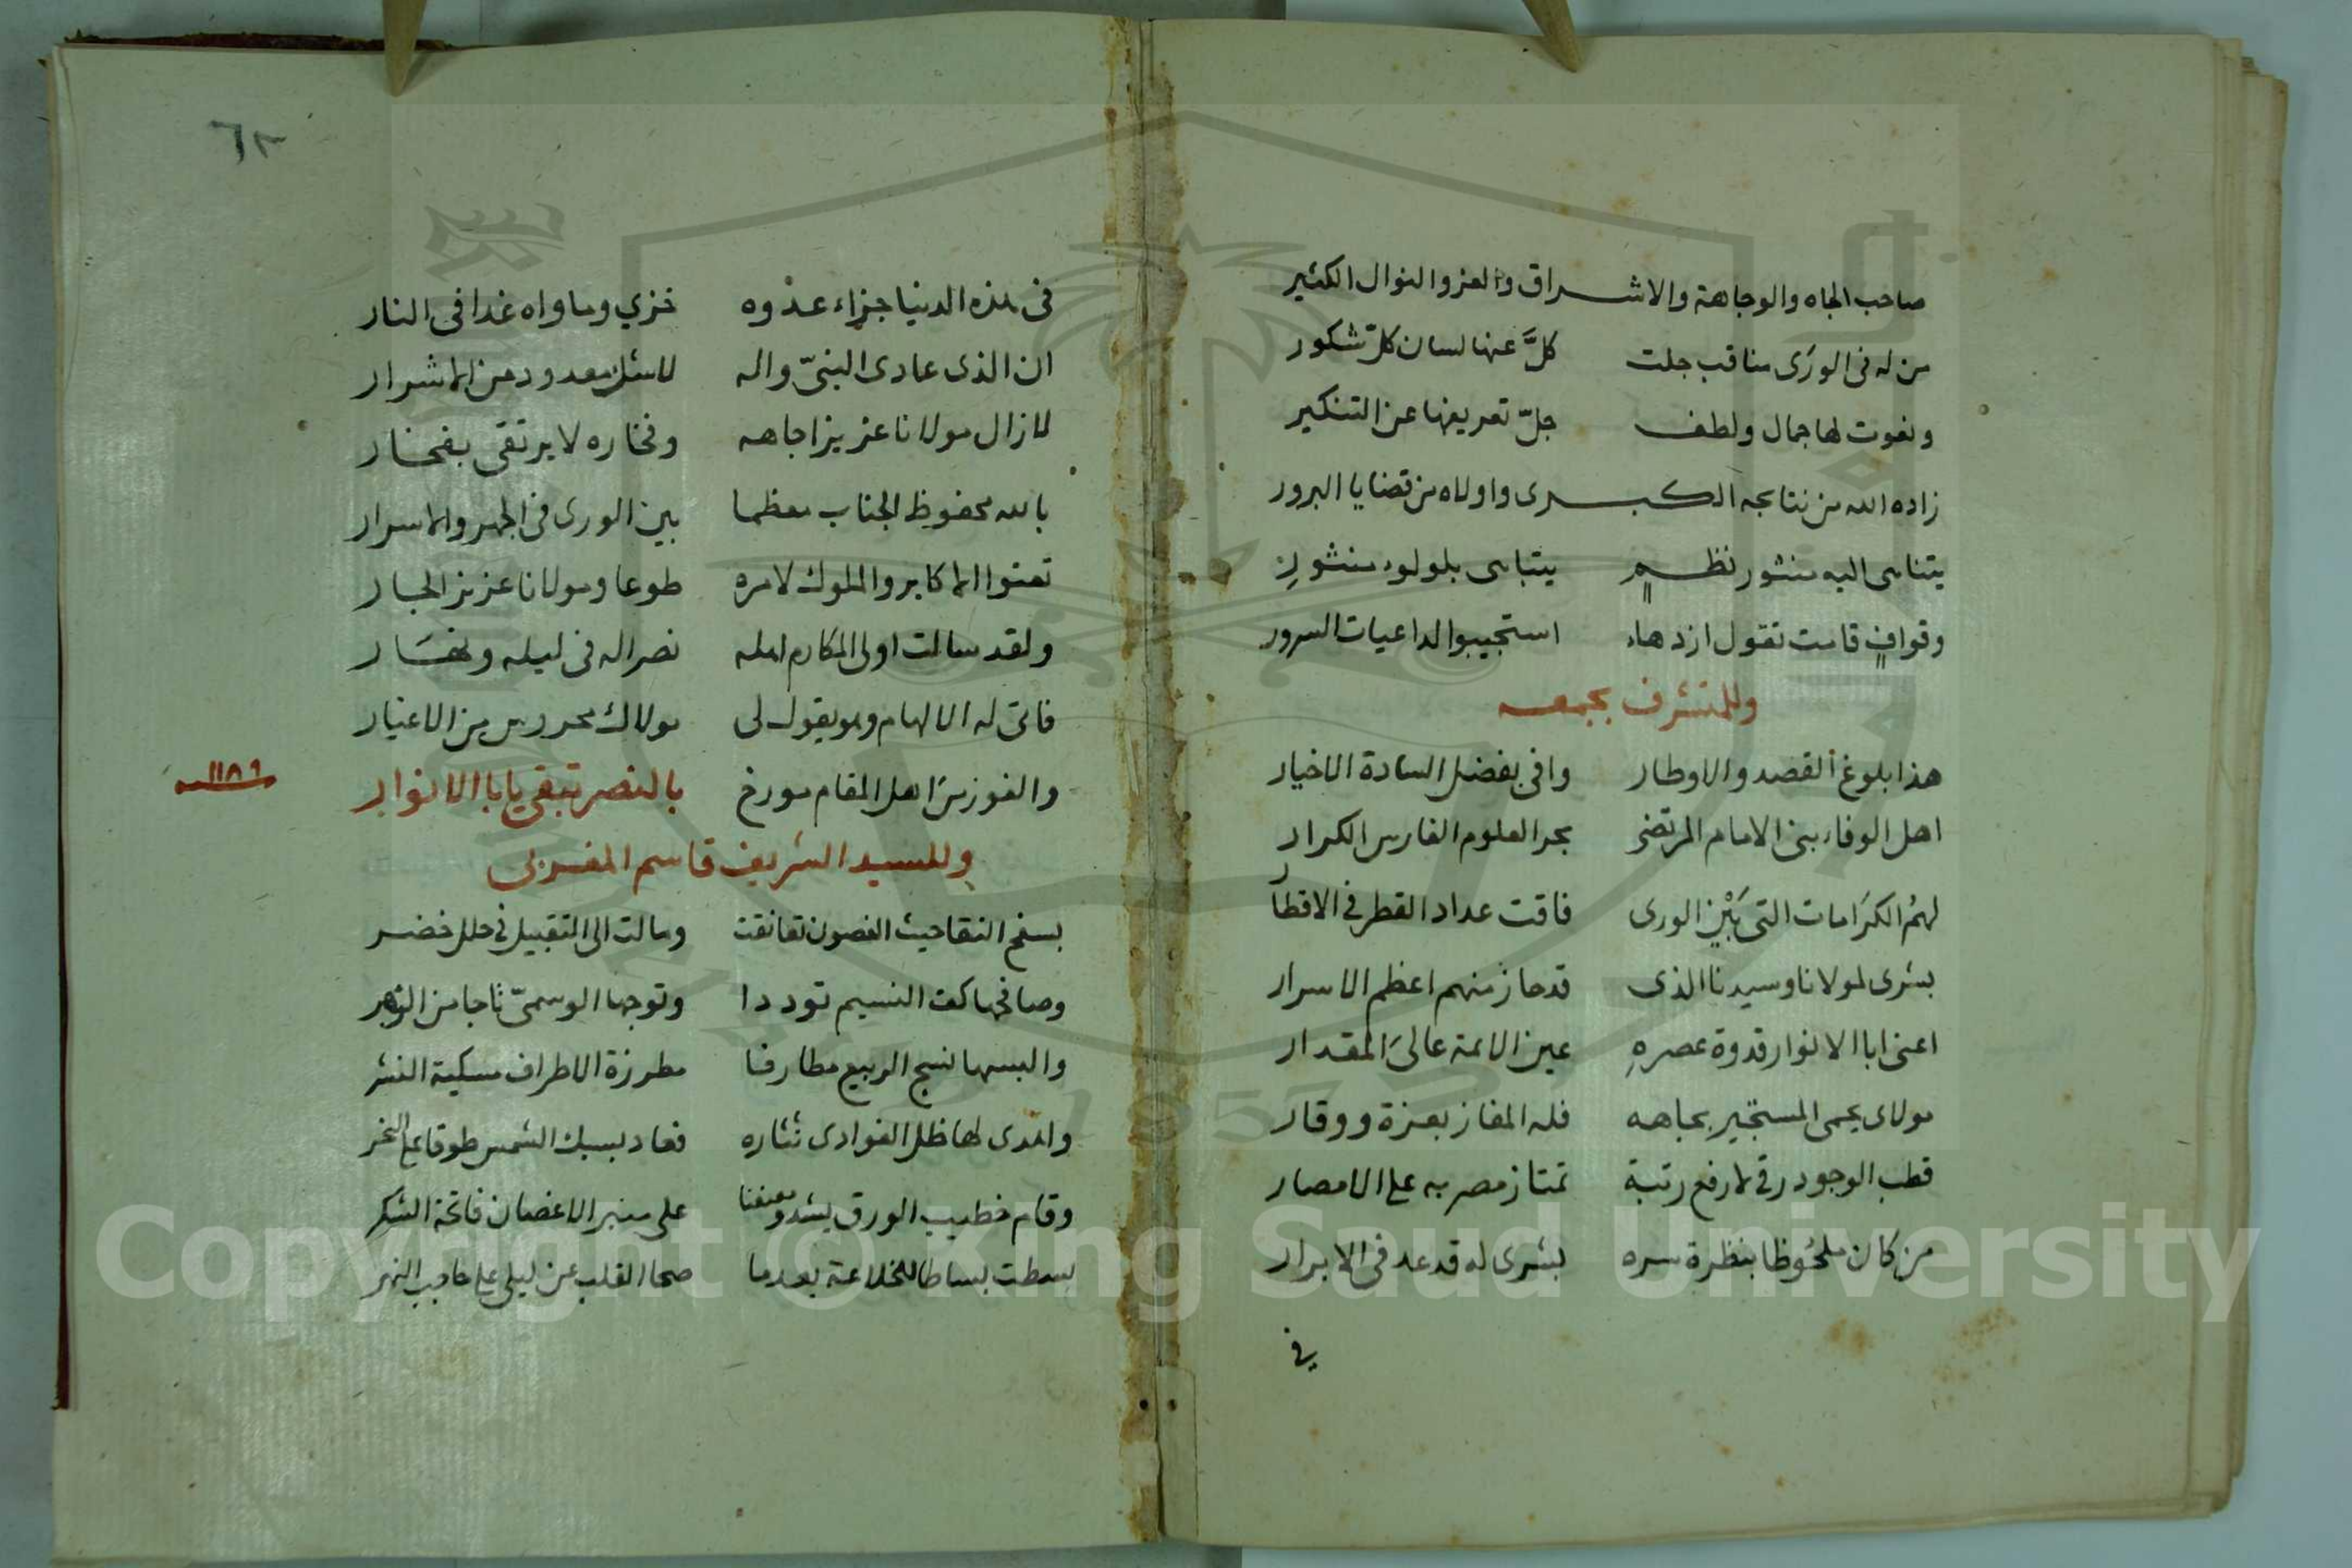 صاحب الجاه والوجاهة والاشراق والعز والنوال الكثير
من له فى الورى مناقب جلت كلَّ عنها لسان كل شكور
ونعوت لها جمال ولطف جلّ تعريفها عن التنكير
زاده الله من نتايجه الكبرى واولاه من قضايا البرور
يتناهى اليه منثور نظمٍ يتباهى بلولوء منثورِ
وقوافٍ قامت تقول ازدهاء استجيبوا لداعيات السرور
وللمتشرف بجمعه
هذا بلوغ القصد والاوطار وافى بفضل السادة الاخيار
اهل الوفاء بنى الامام المرتضى بحر العلوم الفارس الكرار
لهمُ الكرَامات التى بَيْن الورى فاقت عداد القطر فى الاقطار
بشرى لمولانا وسيدنا الذى قد حاز منهم اعظم الاسرار
اعنى ابا الانوار قدوة عصرهِ عين الائمة عالىَ المقدار
مولاى يحمى المستجير بجاهه فله المفاز بعزة ووقار
قطب الوجود رقى لارفع رتبة تمتاز مصر به على الامصار
من كان ملحُوظا بنظرة سره بشرى له قد عد فى الابرار
فى
٦٢
فى هذه الدنيا جزاء عدوه خزي وماواه غدا فى النار
ان الذى عادى النبىّ واله لاشك معدود من الاشرار
لازال مولانا عزيزا جاهه وفخاره لا يرتقى بفخار
بالله محفوظ الجناب معظما بين الورى فى الجهر والاسرار
تعنوا الاكابر والملوك لامره طوعا ومولانا عزيز الجار
ولقد سالت اولى المكارم اهله نصرا له فى ليله ونهَار
فاتى له الالهام وهو يقول لى مولاك محروس من الاغيار
والفوز من اهل المقام مورخ بالنصر تبقى يا ابا الانوار
سنة ١١٨٩
وللسيد الشريف قاسم المغربى
بسفح النقا حيث الغصون تعانقت ومالت الى التقبيل فى حلل خضر
وصافحها كف النسيم توددا وتوجها الوسمىّ تاجا من الزهر
والبسها نسج الربيع مطارفا مطرزة الاطراف مسكية النشر
واهدى لها ظل الغوادى نثاره فعاد بسبك الشمس طوقا على النحر
وقام خطيب الورق يشدو معلنا على منبر الاغصان فاتحة الشكر
بسطت بساطا للخلاعة بعدما صحا القلب عن ليلى على حاجب النهر